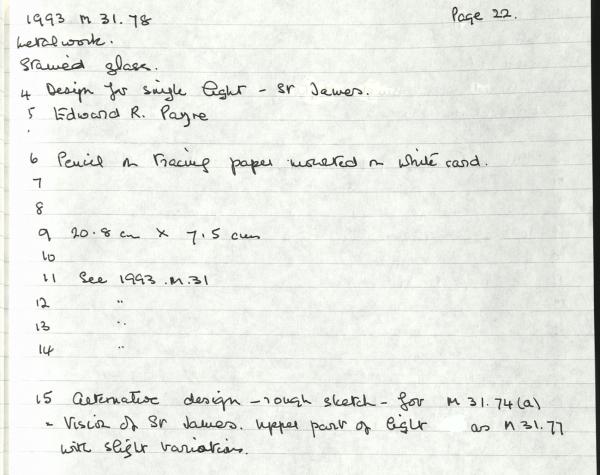 1993 M.31.78 Page 22.
Metalwork.
Stained glass.
4 Design for single light - St James.
5 Edward R. Payne
6 Pencil on tracing paper mounted on white card.
7
8
9 20.8 cm × 7.5 cms
10
11 See 1993.M.31
12 "
13 "
14 "
15 Alternative design - rough sketch - for M 31.74(a)
- Vision of St James. Upper part of light as M 31.77
with slight variations.